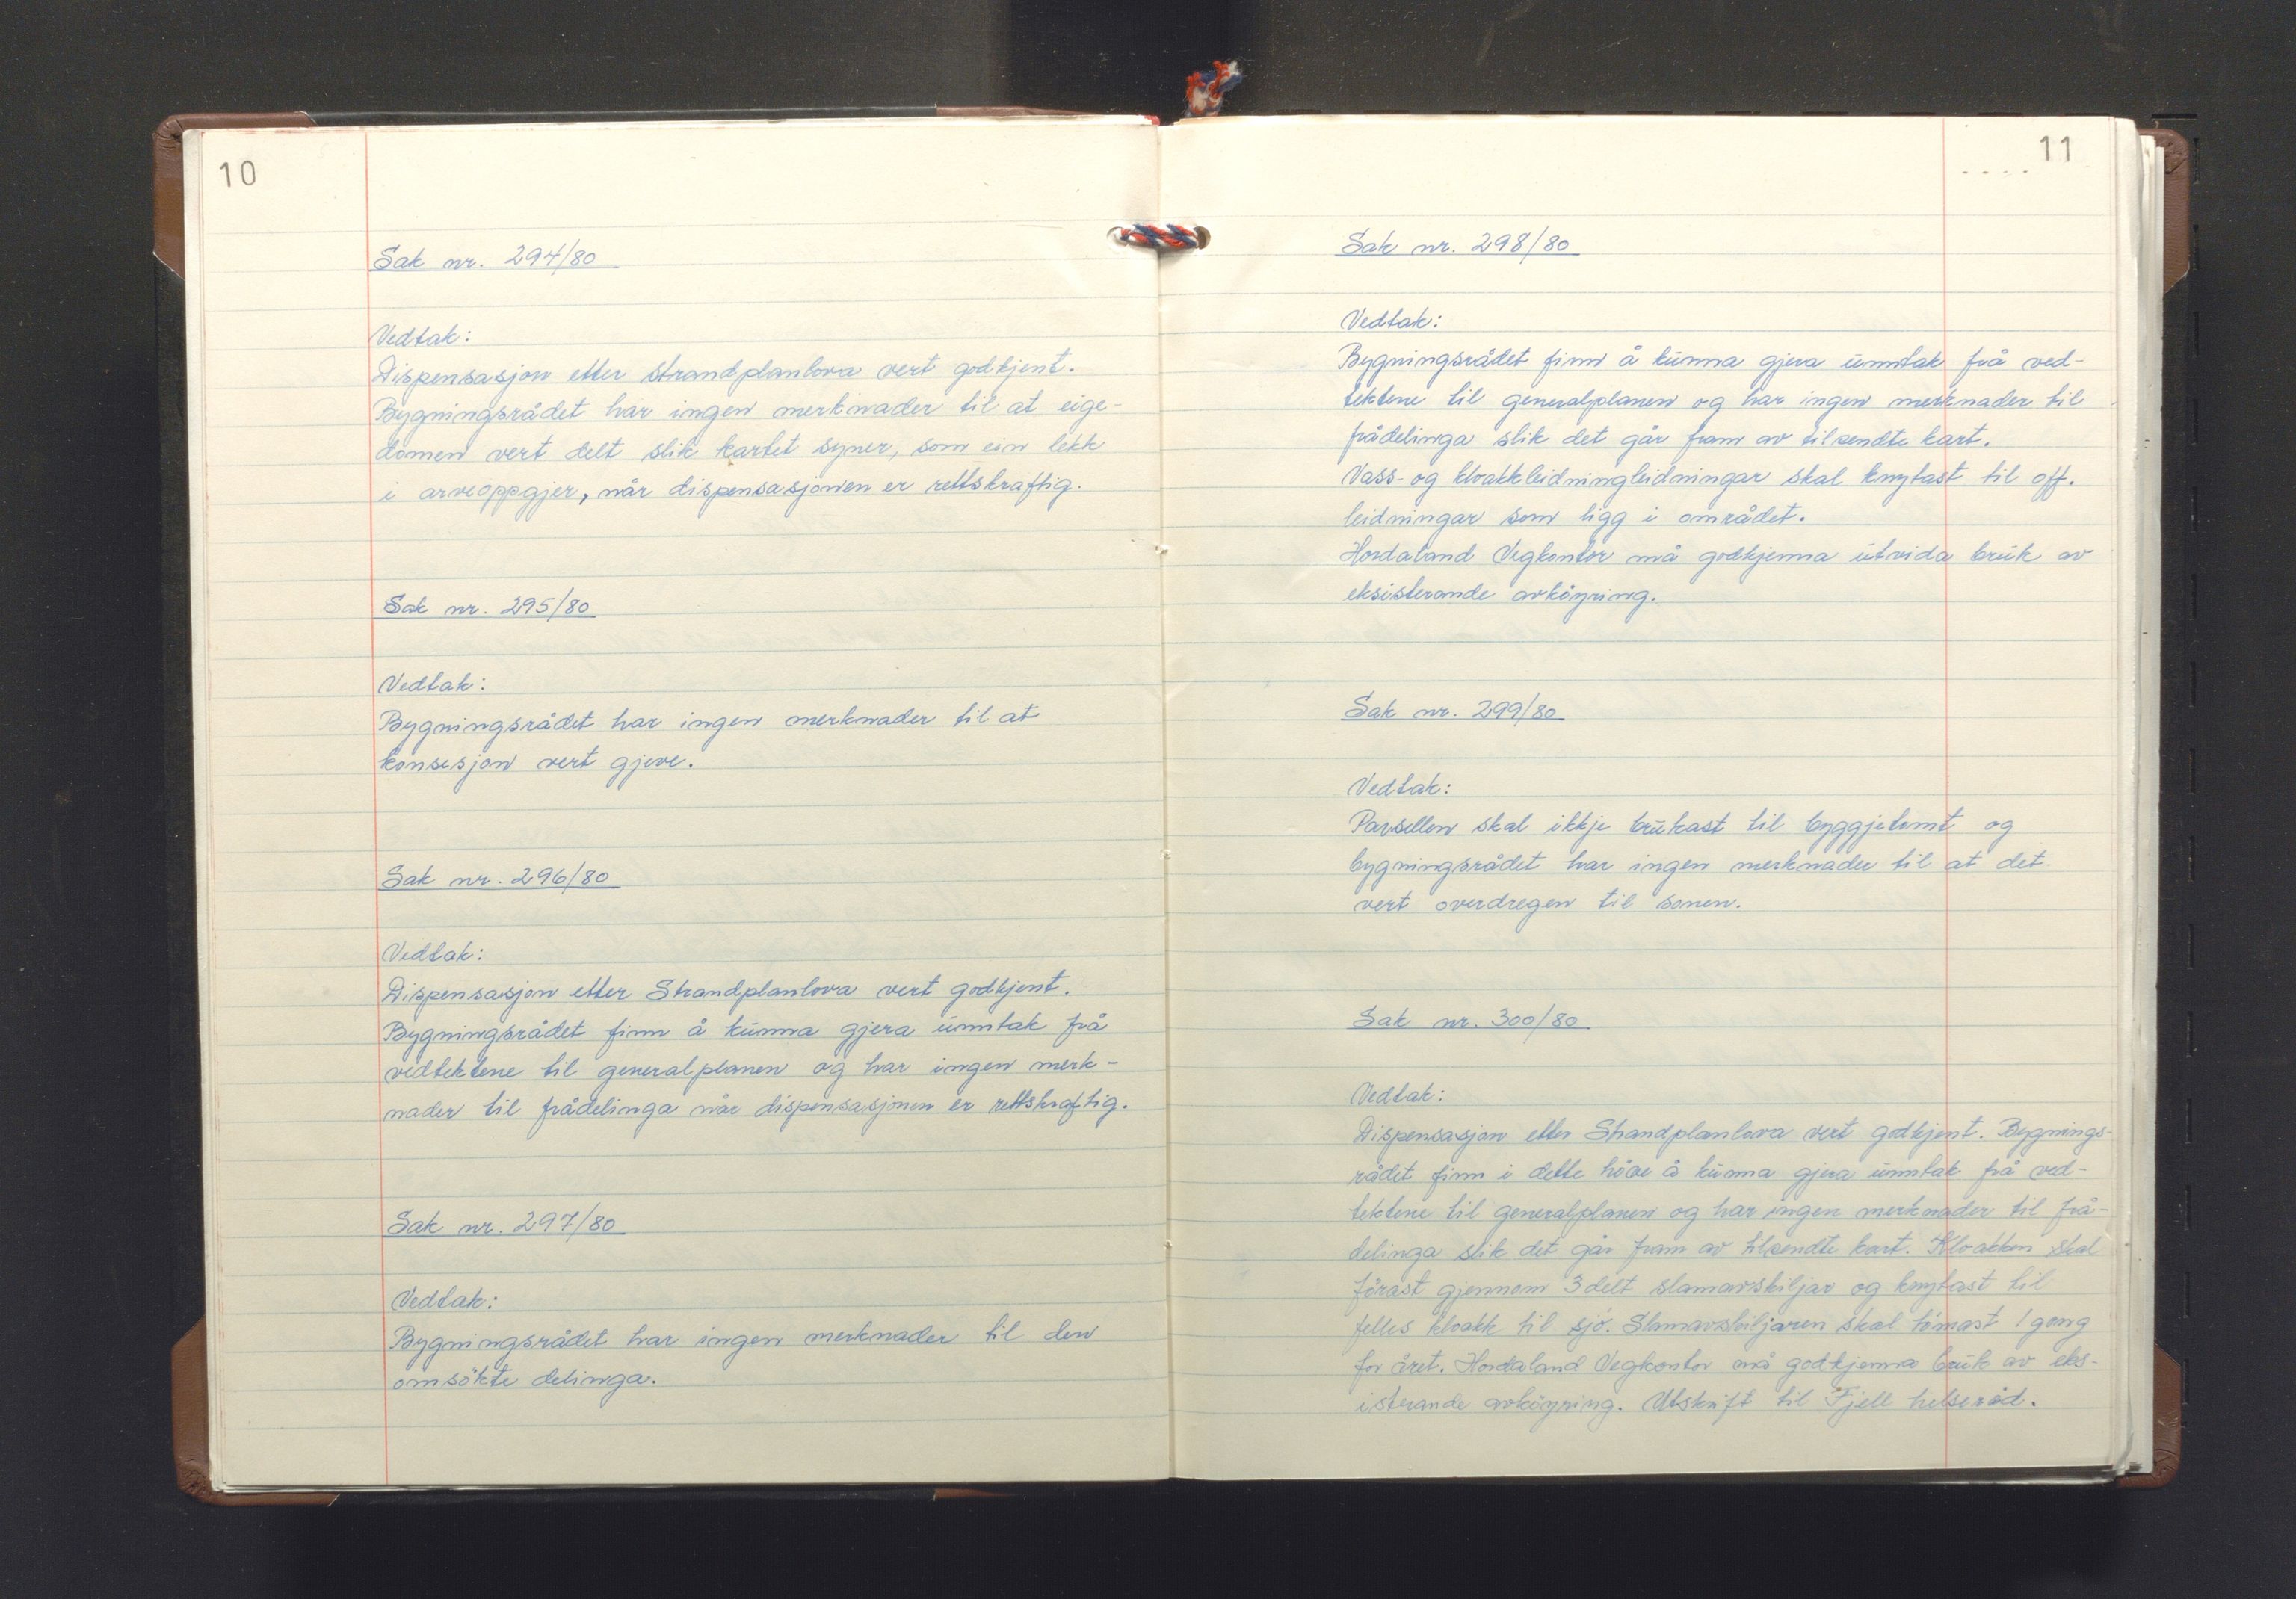 10
Sak nr. 294/80
Vedtak:
Dispensasjon etter strandplanlova vert godkjent.
Bygningsrådet har ingen merknader til at eige-
domen vert delt slik kartet syner, som ein lekk
i arveoppgjer, når dispensasjonen er rettskraftig.
Sak nr. 295/80
Vedtak:
Bygningsrådet har ingen merknader til at
konsesjon vert gjeve.
Sak nr. 296/80
Vedtak:
Dispensasjon etter Strandplanlova vert godkjent.
Bygningsrådet finn å kunna gjera unntak frå
vedtektene til generalplanen og har ingen merk-
nader til frådelinga når dispensasjonen er rettskraftig.
Sak nr. 297/80
Vedtak:
Bygningsrådet har ingen merknader til den
omsökte delinga.
11
Sak nr. 298/80
Vedtak:
Bygningsrådet finn å kunna gjera unntak frå ved-
tektene til generalplanen og har ingen merknader til
frådelinga slik det går fram av tilsendte kart.
Vass- og kloakkleidningleidningar skal knytast til off.
leidningar som ligg i området.
Hordaland Vegkontor må godkjenna utvida bruk av
eksisterande avköyring.
Sak nr. 299/80
Vedtak:
Parsellen skal ikkje brukast til byggjetomt og
bygningsrådet har ingen merknader til at det
vert overdregen til sonen.
Sak nr. 300/80
Vedtak:
Dispensasjon etter Strandplanlova vert godkjent. Bygnings-
rådet finn i dette höve å kunna gjera unntak frå ved-
tektene til generalplanen og har ingen merknader til frå-
delinga slik det går fram av tilsendte kart. Kloakken skal
förast gjennom 3 delt slamavskiljar og knytast til
felles kloakk til sjö. Slamavskiljaren skal tömast 1 gong
for året. Hordaland Vegkontor må godkjenna bruk av eks-
isterande avköyring. Utskrift til Fjell helseråd.